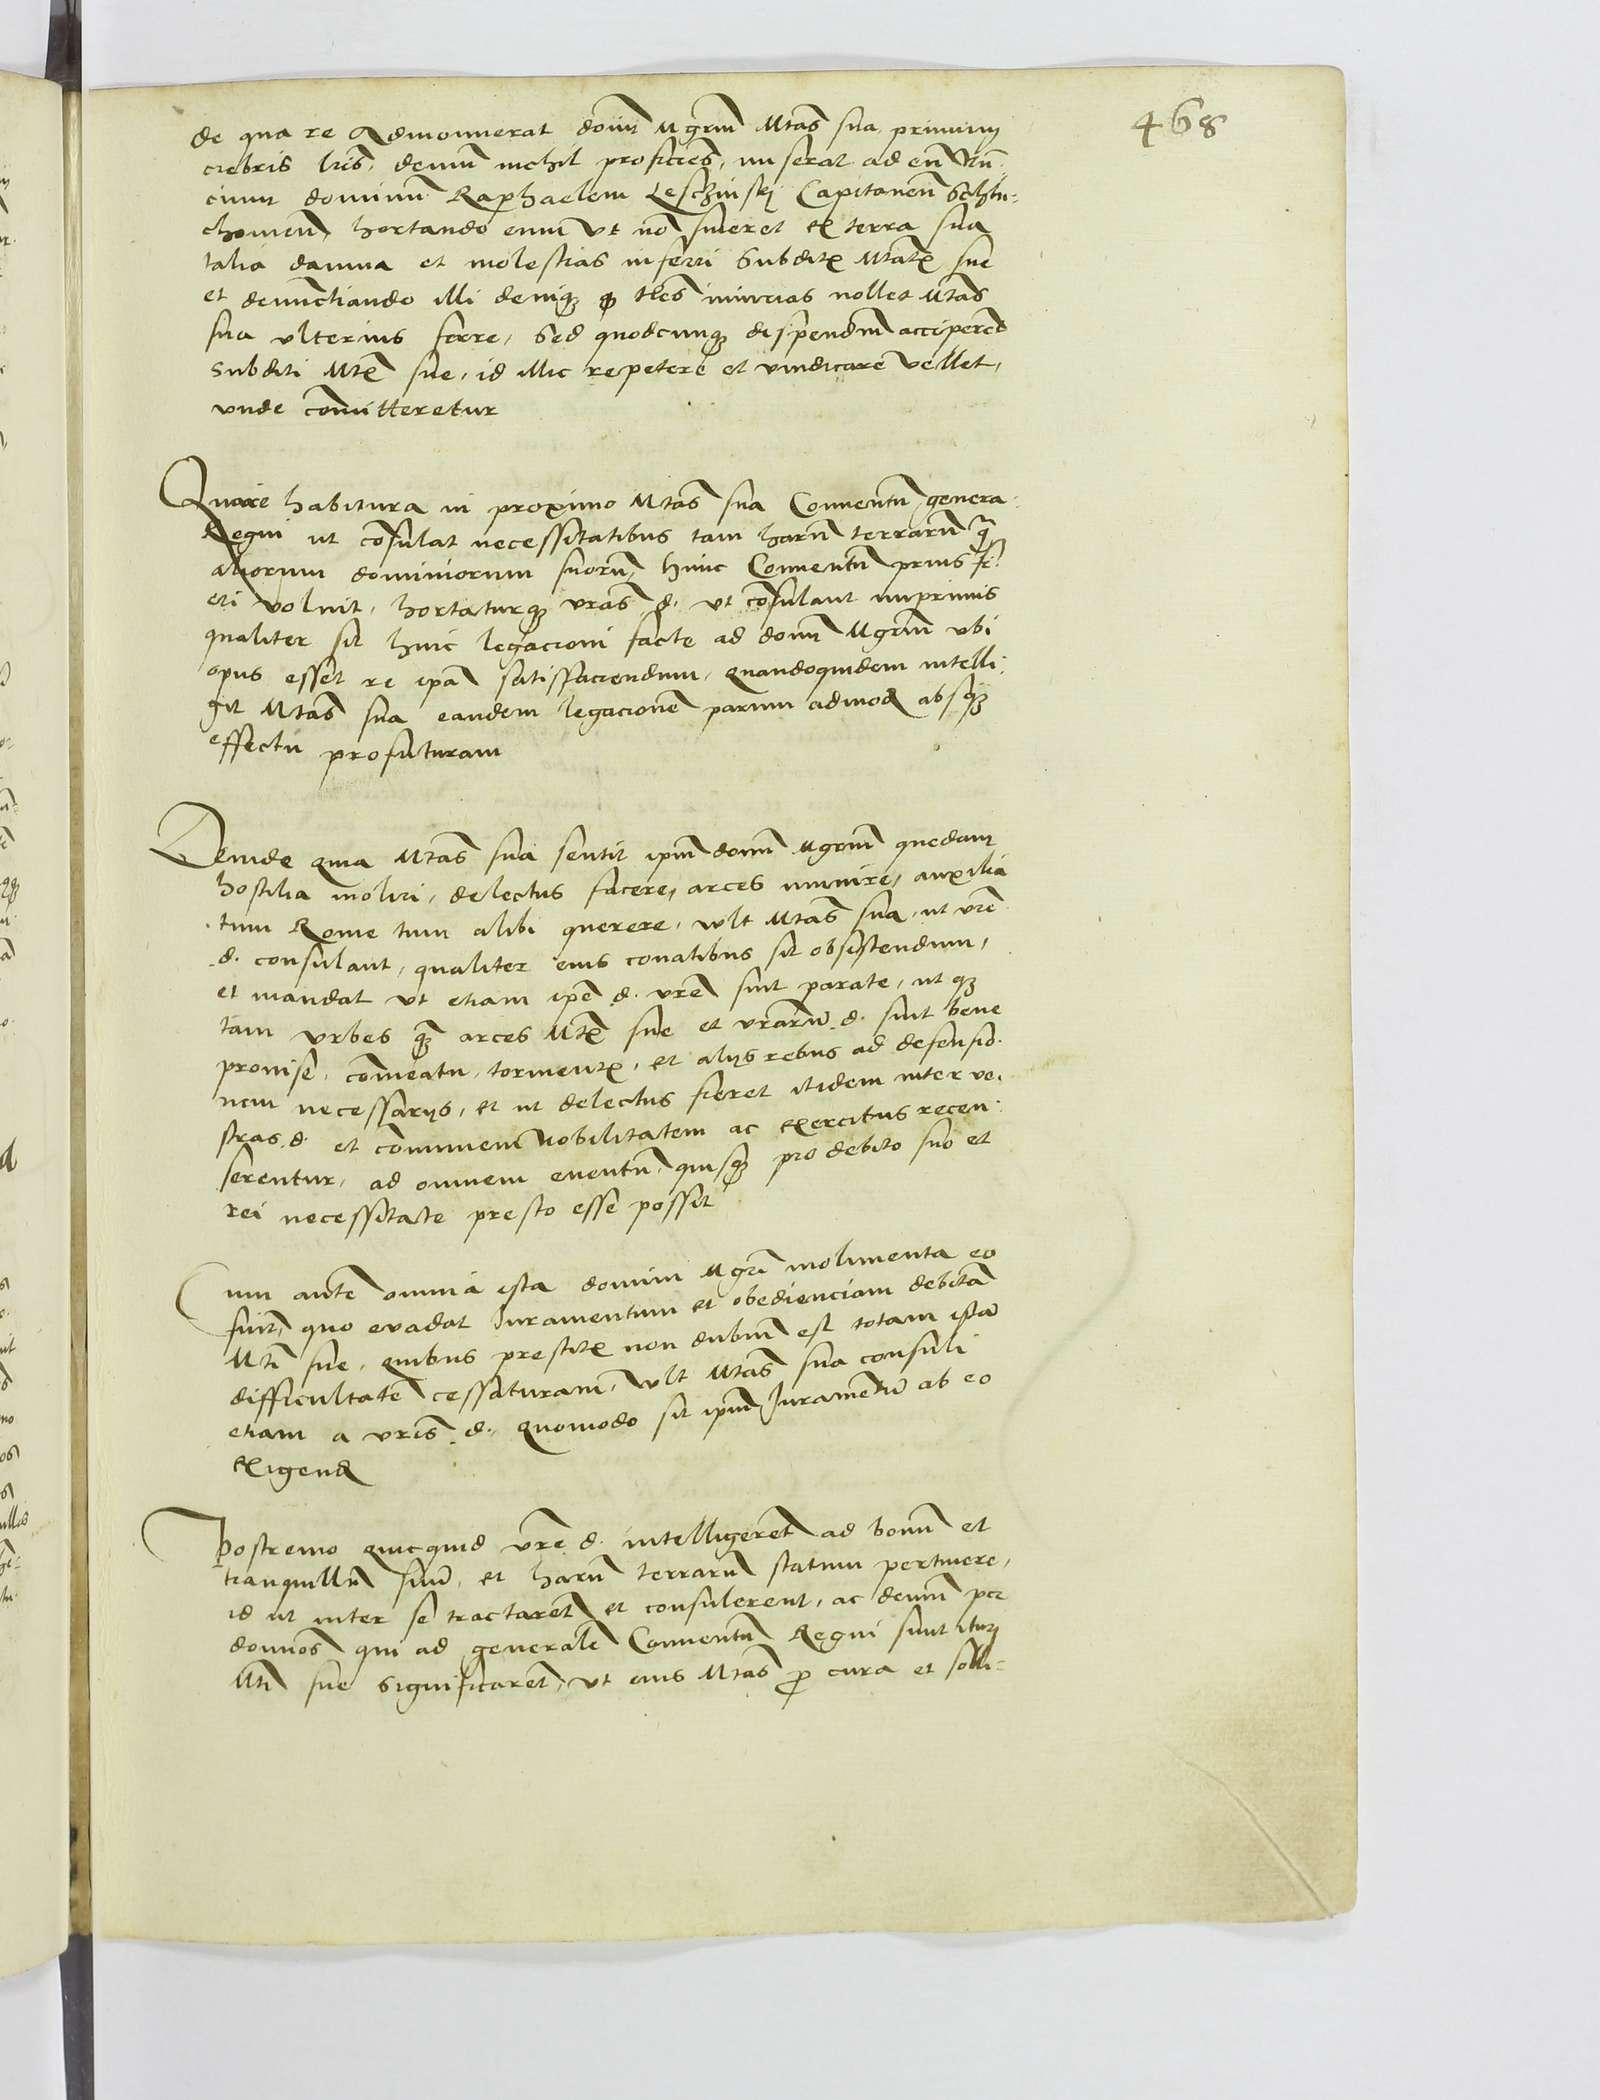 468
de qua re Admonuerat donũ Mgrm̃ Mtas̃ sua primum
crebris lris̃, demũ nichil proficiẽs, miserat ad eũ Nũ-
cium dominũ Raphaelem Leschinski Capitaneũ Schlu-
choviẽn, hortando eum Ut nõ sineret ex terra sua
talia damna et molestias inferri Subditꝭ Mtatꝭ sue
et denunctiando illi deniqꝫ ꝙ tles̃ iniurias nollet Mtas̃
sua ulterius ferre, Sed quodcunqꝫ dispendiũ acciperẽt
Subditi Mtꝭ sue, id illic repetere et vindicare Vellet,
unde com̃itteretur
Quare habitura in proximo Mtas̃ sua Conventũ genera.
Regni ut cõsulat necessitatibus tam harũ terrarũ q̃
aliorum dominiorum suorũ, hunc Conventũ prius fi-
eri voluit, hortaturqꝫ vras̃ d. ut cõsulant inprimis
qualiter sit huic legacioni facte ad donũ Mgrm̃ ubi
opus esset re ipã satisfaciendum, quandoquidem intelli-
git Mtas̃ sua eandem legacionẽ parum admod absqꝫ
effectu profuturam
Deinde quia Mtas̃ sua sentit ipm̃ donũ Mgrm̃ quedam
hostilia moliri, delectus facere, arces munire, auxilia
tum Rome tum alibi querere, vult Mtas̃ sua, ut vre͂
d. consulant, qualiter eius conatibus sit obsistendum,
et mandat ut etiam ipẽ d. vre͂ sint parate, ut qꝫ
tam urbes qꝫ arces Mtꝭ sue et vrarũ d. sint bene
provise, com̃eatu, tormentꝭ, et alijs rebus ad defensio-
nem necessarijs, et ut delectus fieret itidem inter ve-
stras d. et com̃unem Nobilitatem ac exercitus recen-
serentur, ad omnem eventũ quisqꝫ pro debito suo et
rei necessitate presto esse possit
Cum autẽ omnia ista domini Mgri͂ molimenta eo
sint, quo evadat Juramentum et obedienciam debitã
Mti͂ sue, quibus prestitꝭ non dubiũ est totam istã
difficultatẽ cessaturam, vult Mtas̃ sua consuli
etiam a vris̃ d. quomodo sit ipm̃ Juramentũ ab eo
exigend
Postremo quicquid vre͂ d. intelligerẽt ad bonũ et
tranquillũ suũ, et harũ terrarũ statum pertinere,
id ut inter se tractarẽt et consulerent, ac demũ per
domnos̃ qui ad generalẽ Conventũ Regni sunt ituri
Mti͂ sue significarẽt, ut eius Mtas̃ ꝓ cura et solli-